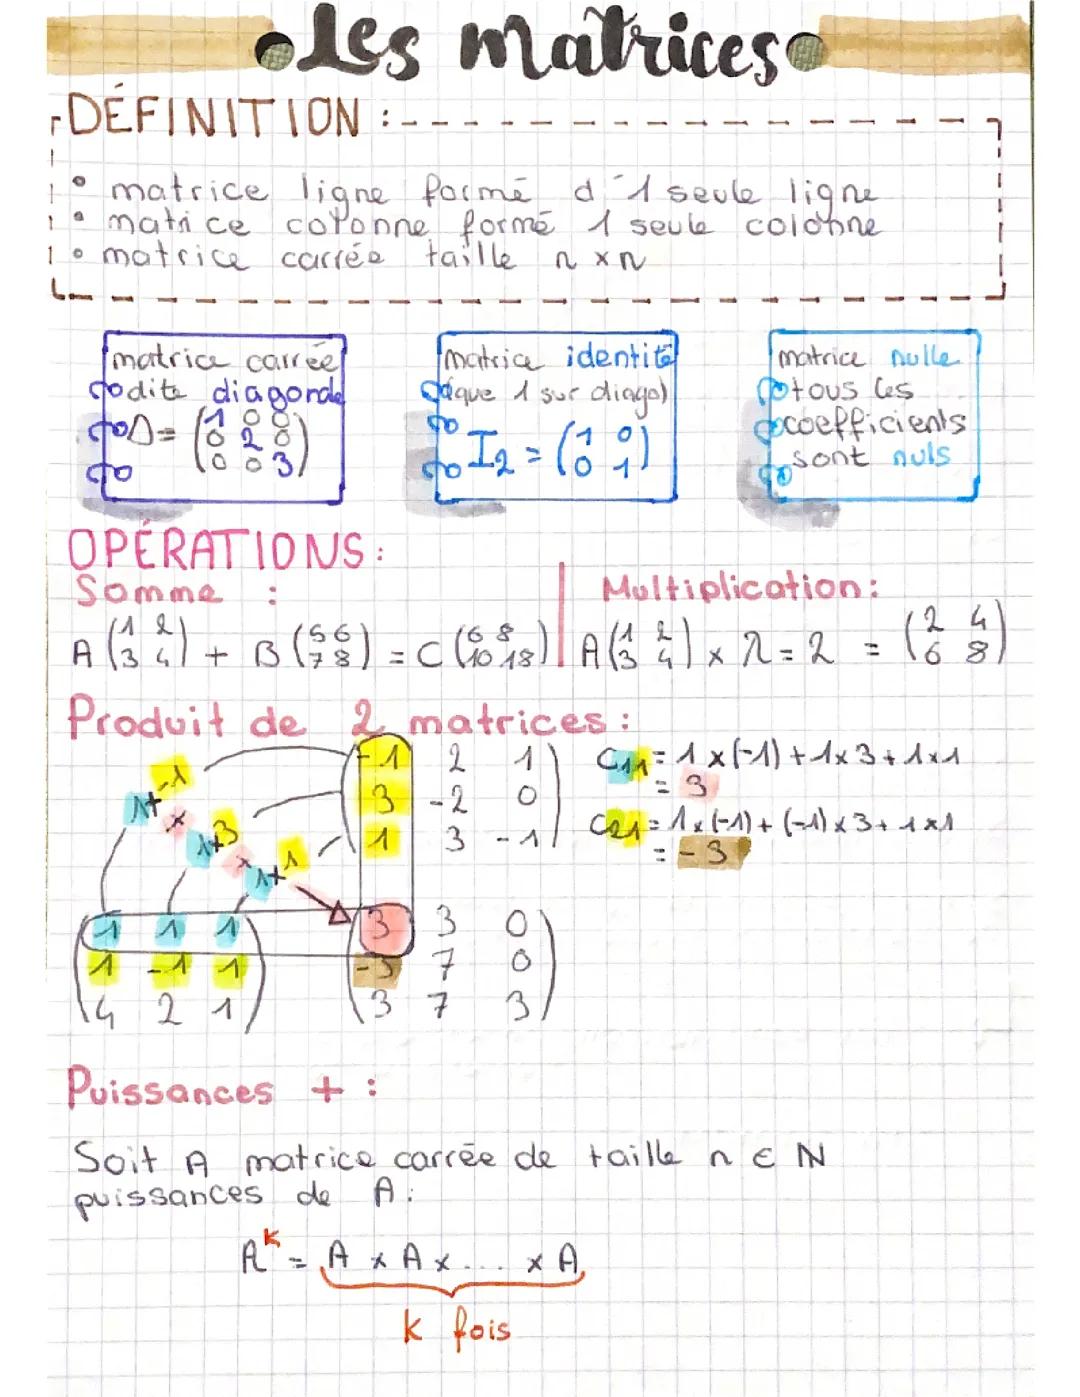 Les matrices
DÉFINITION :
• matrice ligne formé d'1 seule ligne
• matrice colonne formé 1 seule colonne
• matrice carrée taille n x n
matrice carrée
dite diagonale
Δ= (1 0 0
0 2 0
0 0 3)
matrice identité
(que 1 sur diago)
I₂ = (1 0
0 1)
matrice nulle
tous les
coefficients
sont nuls
OPÉRATIONS:
Somme :
A (1 2
3 4) + B (5 6
7 8) = C (6 8
10 18)
Multiplication:
A (1 2
3 4) x λ = 2 = (2 4
6 8)
Produit de 2 matrices :
-1 2 1
3 -2 0
1 3 -1
C11 = 1 x (-1) + 1 x 3 + 1 x 1
= 3
C21 = 1 x (-1) + (-1) x 3 + 1 x 1
= -3
1+-1
x
1+3
x
1+1
1 1 1
1 -1 1
4 2 1
3 3 0
-3 7 0
3 7 3
Puissances + :
Soit A matrice carrée de taille n ∈ N
puissances de A :
A^k = A x A x ... x A
k fois